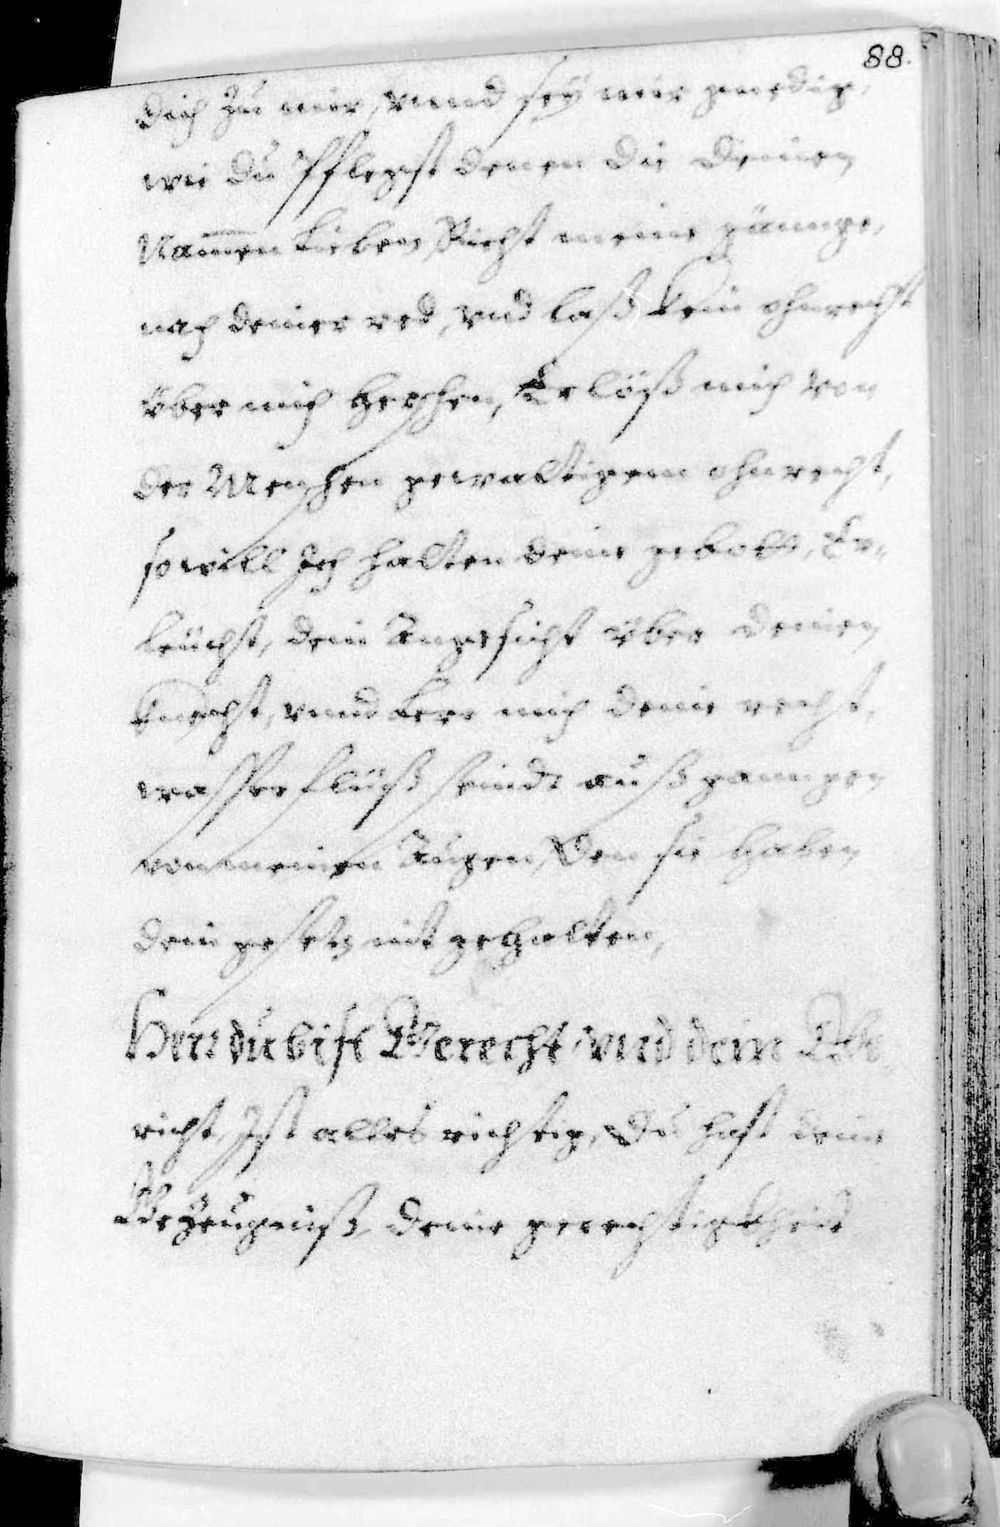 88.
dich zu mir, vnnd sey mir gnedig,
wie du Pflegst denen die deinen
Namen Lieben, Richt meine gännge,
nach deiner red, vnd laß kein ohnrecht
vber mich herschen, Erlöß mich von
der Menschen gewaltigem ohnrecht,
so will Ich halten deine gebott, Er-
leücht, dein Angesicht vber deinen
knecht, vnnd lere mich deine recht,
wasserflüß seindt außgangen
von meinen Augen, Den sie haben
dein gesetz nit gehalten,
Herr du bist Gerecht, vnd dein Ge
richt, Ist alles richtig, Du hast deine
Gezeügnüß, deine gerechtigkheit